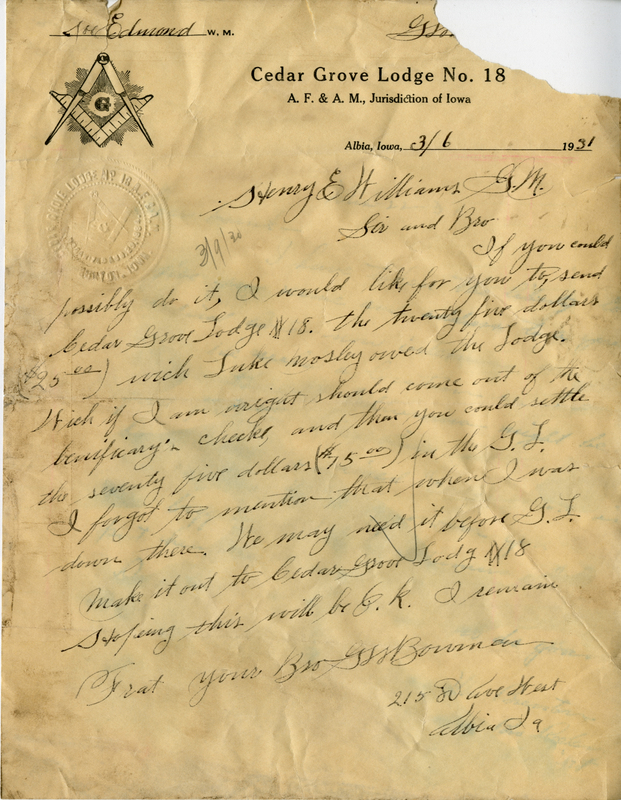 Joe Edmond W. M.
Cedar Grove Lodge No. 18
A. F. & A. M., Jurisdiction of Iowa
G
Albia, Iowa, 3/6 1931
Henry E Williams G.M.
Sir and Bro
3/9/30
If you could
possibly do it, I would like for you to, send
Cedar Grove Lodge #18. the twenty five dollars
25.00) wich Luke mosley owed the Lodge.
Wich if I am wright should come out of the
benificary. checks, and then you could settle
the seventy five dollars ($75.00) in the G. L.
I forgot to mention that when I was
down there. We may need it before G L
Make it out to Cedar Grove Lodg #18
Hoping this will be O. k. I remain
Frat Your Bro G W Bowman
215 3D Ave West
Albia Ia